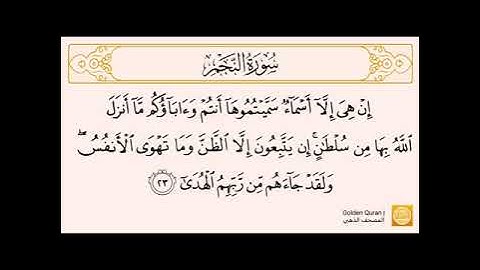 سُورَةُ النَّجْمِ
إِنْ هِىَ إِلَّآ أَسْمَآءٌ سَمَّيْتُمُوهَآ أَنتُمْ وَءَابَآؤُكُم مَّآ أَنزَلَ
ٱللَّهُ بِهَا مِن سُلْطَـٰنٍ ۚ إِن يَتَّبِعُونَ إِلَّا ٱلظَّنَّ وَمَا تَهْوَى ٱلْأَنفُسُ ۖ
وَلَقَدْ جَآءَهُم مِّن رَّبِّهِمُ ٱلْهُدَىٰٓ ٢٣
Golden Quran |
المصحف الذهبي